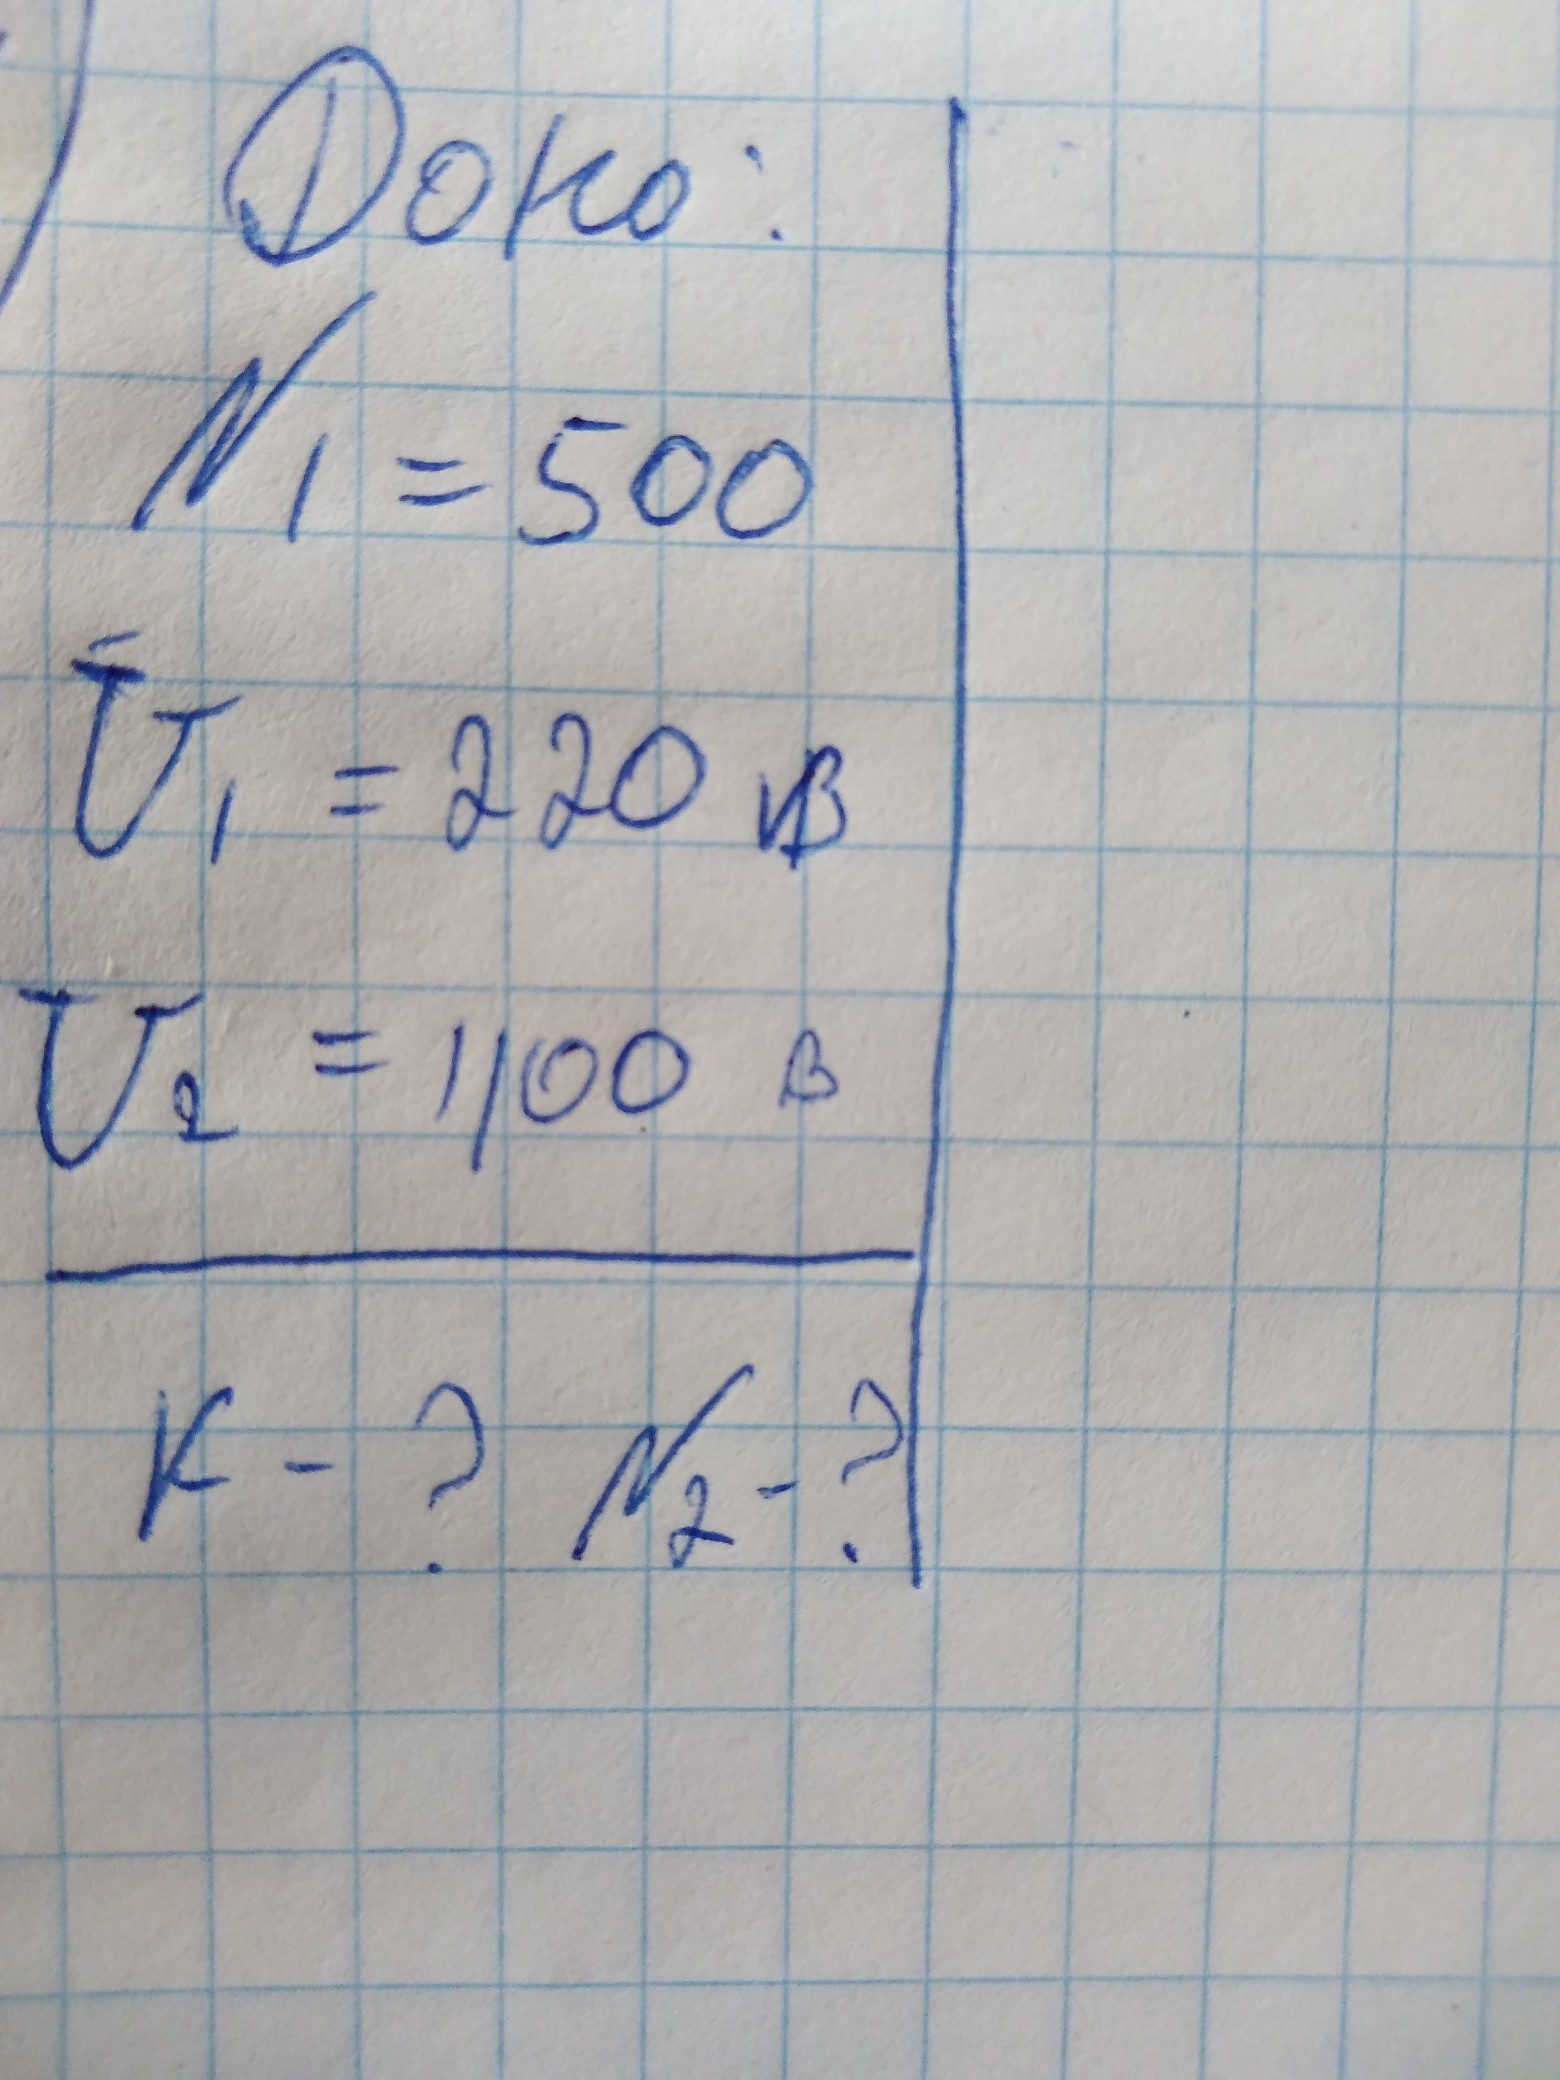 Дано:
N₁ = 500
U₁ = 220 В
U₂ = 1100 В
K - ? N₂ - ?